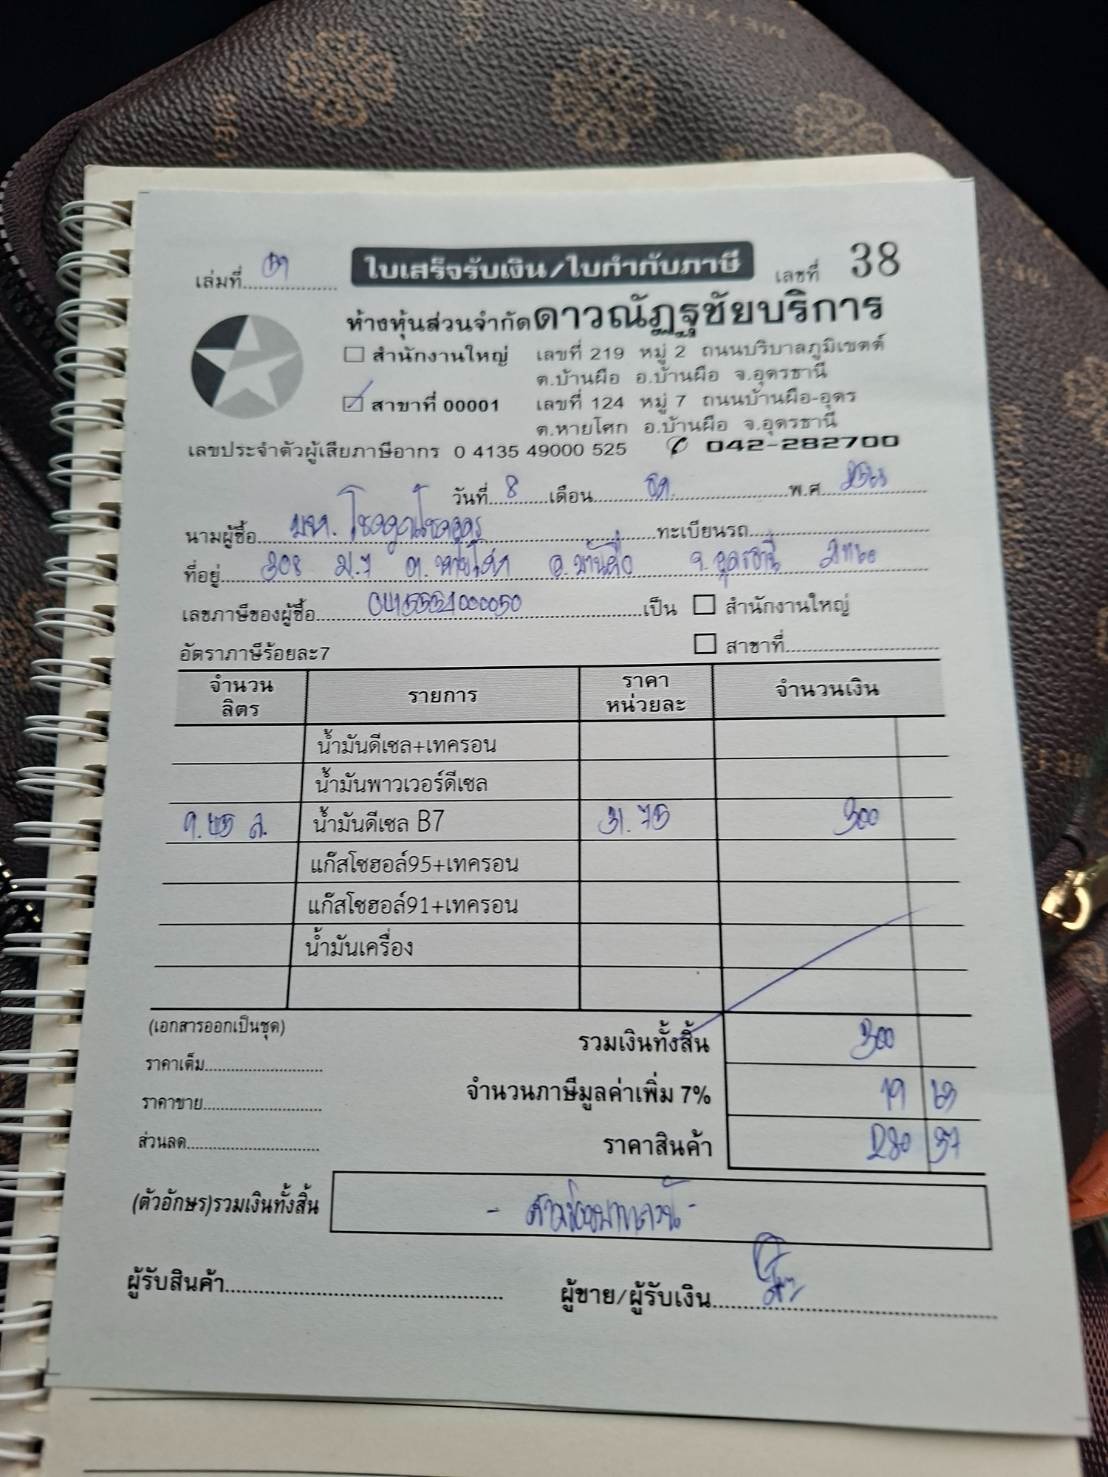 ใบเสร็จรับเงิน/ใบกำกับภาษี
เล่มที่
เลขที่ 38
ห้างหุ้นส่วนจำกัดดาวณัฏฐชัยบริการ
สำนักงานใหญ่ เลขที่ 219 หมู่ 2 ถนนบริบาลภูมิเขตต์
ต.บ้านผือ อ.บ้านผือ จ.อุดรธานี
สาขาที่ 00001 เลขที่ 124 หมู่ 7 ถนนบ้านผือ-อุดร
ต.หายโศก อ.บ้านผือ จ.อุดรธานี
เลขประจำตัวผู้เสียภาษีอากร 0 4135 49000 525 042-282700
วันที่ 8 เดือน พ.ศ.
นามผู้ซื้อ ทะเบียนรถ
ที่อยู่ 308 ม.7 ต.หายโศก อ.บ้านผือ จ.อุดรธานี
เลขภาษีของผู้ซื้อ เป็น สำนักงานใหญ่
อัตราภาษีร้อยละ7 สาขาที่
จำนวนลิตร รายการ ราคาหน่วยละ จำนวนเงิน
น้ำมันดีเซล+เทครอน
น้ำมันพาวเวอร์ดีเซล
9.45 ล. น้ำมันดีเซล B7 31.75 300
แก๊สโซฮอล์95+เทครอน
แก๊สโซฮอล์91+เทครอน
น้ำมันเครื่อง
(เอกสารออกเป็นชุด) รวมเงินทั้งสิ้น 300
ราคาเต็ม
จำนวนภาษีมูลค่าเพิ่ม 7% 19 63
ราคาขาย
ส่วนลด ราคาสินค้า 280 37
(ตัวอักษร)รวมเงินทั้งสิ้น - สามร้อยบาทถ้วน -
ผู้รับสินค้า ผู้ขาย/ผู้รับเงิน